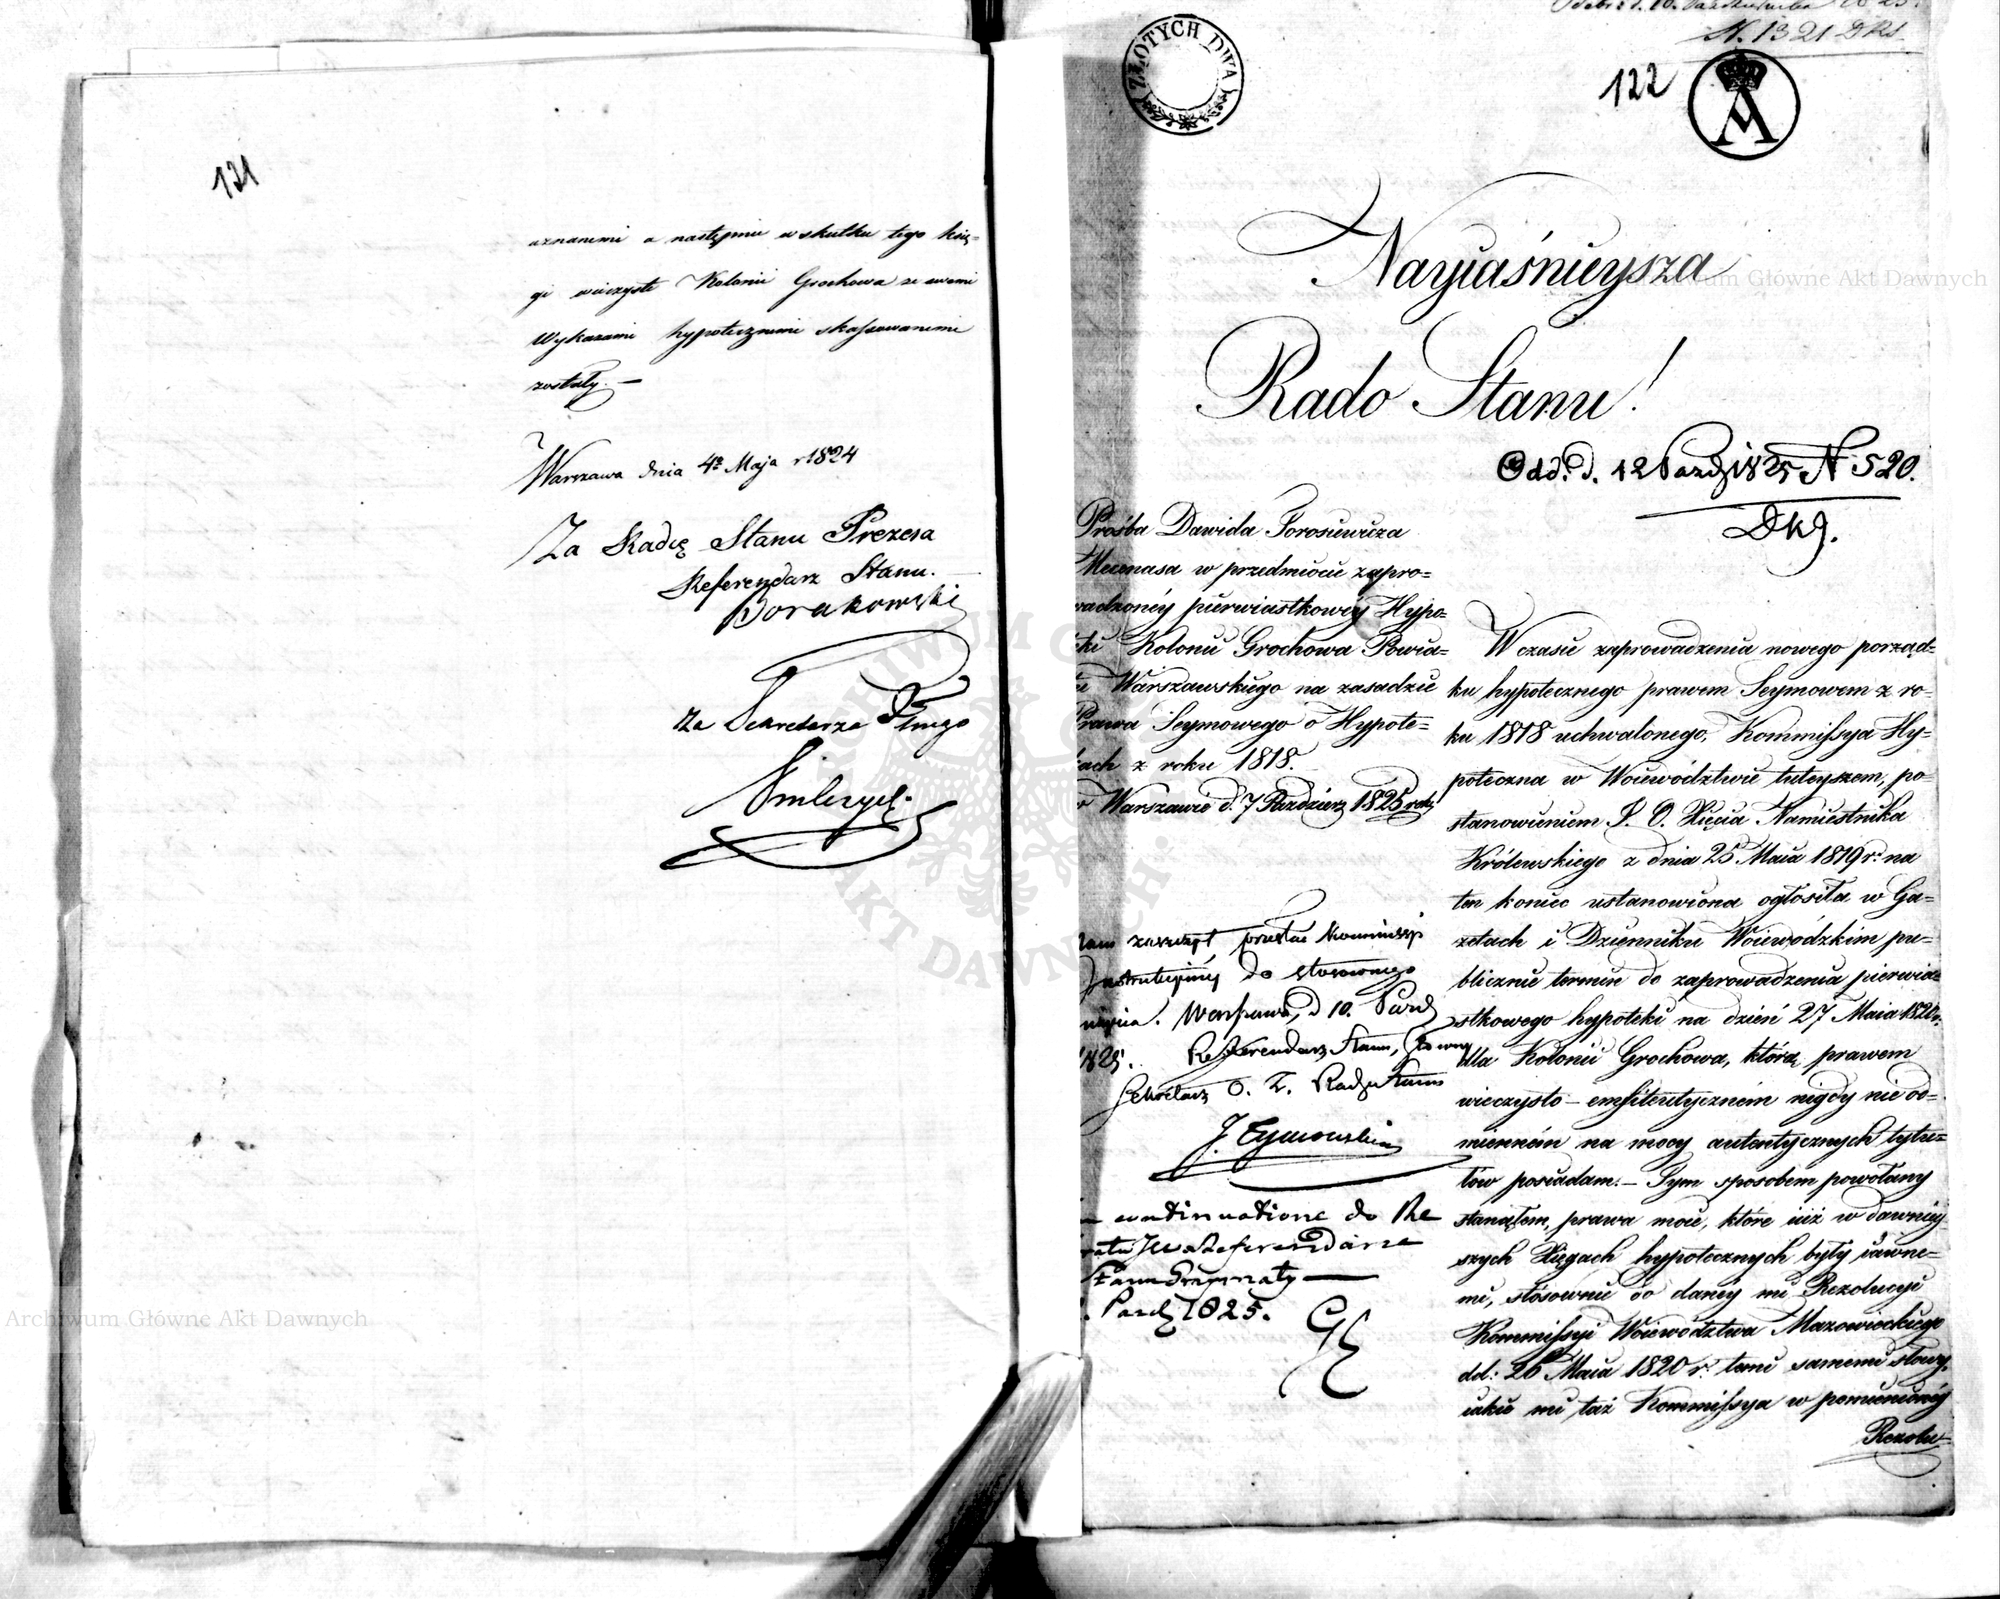 121
uznanemi a następnie w skutku tego księ=
gi wieczyste Kolonii Grochowa ze swemi
Wykazami hypotecznemi skassowanemi
zostały. —
Warszawa dnia 4º Maja r 1824
Za Radcę Stanu Prezesa
Referendarz Stanu.
Borakowski
Za Sekretarza
ZŁOTYCH DWA
N. 1321
122
A
Nayiaśnieysza
Rado Stanu!
Odd. d. 12 Paźdz 1825 N 520.
Prośba Dawida Torosiewicza
Mecenasa w przedmiocie zapro=
wadzonéy pierwiastkowéy Hypo=
teki Kolonii Grochowa Powia=
tu Warszawskiego na zasadzie
Prawa Seymowego o Hypote=
kach z roku 1818.
w Warszawie d. 7 Paździer 1825 roku
do stosownego
Warszawa, d 10. Paźdz
1825. Referendarz Stanu,
Sekretarz Rady Stanu
J. Tymowski
continuatione do Re
Referendarza
Stanu
Paźdz 1825.
W czasie zaprowadzenia nowego porząd=
ku hypotecznego prawem Seymowem z ro=
ku 1818 uchwalonego, Kommissya Hy=
poteczna w Woiewództwie tuteyszem, po=
stanowieniem J. O. Xięcia Namiestnika
Królewskiego z dnia 25. Maia 1819 r. na
ten koniec ustanowiona ogłosiła w Ga=
zetach i Dzienniku Woiewódzkim pu=
blicznie termin do zaprowadzenia pierwia=
stkowego hypoteki na dzień 27 Maia 1820 r.
dla Kolonii Grochowa, którą prawem
wieczysto – emfiteutyczném nigdy nie od=
mienném na mocy autentycznych tytu=
łów posiadam. — Tym sposobem powołany
stanąłem, prawa moie, które iuż w dawniey=
szych Xięgach hypotecznych były iawne=
mi, stósownie do daney mi Rezolucyi
Kommissyi Woiewództwa Mazowieckiego
dd: 26 Maia 1820 r. temi samemi słowy,
iakie mi taż Kommissya w pomienionéy
Rezolu=
Archiwum Główne Akt Dawnych
Archiwum Główne Akt Dawnych
ARCHIWUM GŁÓWNE AKT DAWNYCH